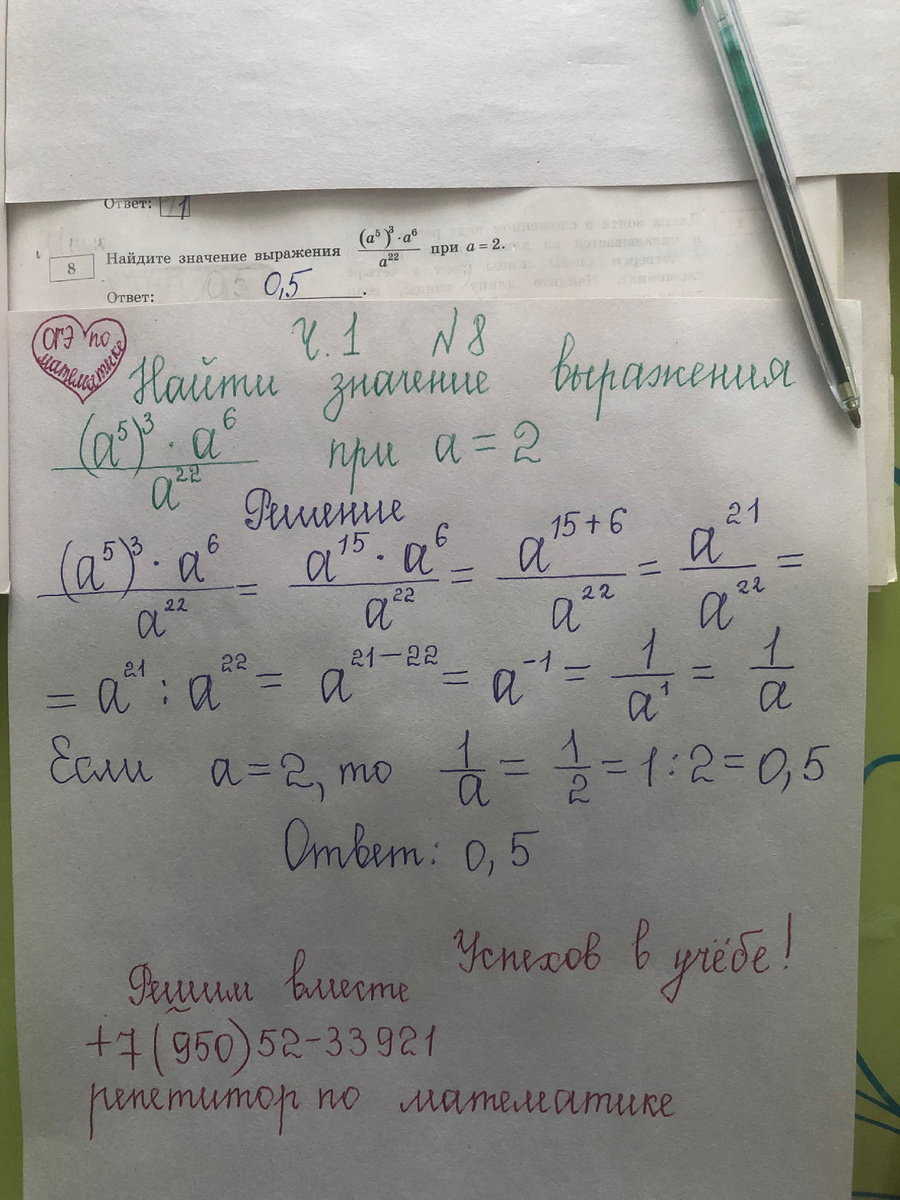 Ответ: 1
8 Найдите значение выражения (a⁵)³·a⁶ / a²² при a = 2.
Ответ: 0,5.
ОГЭ по математике
Ч.1 №8
Найти значение выражения
(a⁵)³ · a⁶ / a²² при a = 2
Решение
(a⁵)³ · a⁶ / a²² = a¹⁵ · a⁶ / a²² = a¹⁵⁺⁶ / a²² = a²¹ / a²² =
= a²¹ : a²² = a²¹⁻²² = a⁻¹ = 1/a¹ = 1/a
Если a = 2, то 1/a = 1/2 = 1 : 2 = 0,5
Ответ: 0,5
Успехов в учёбе!
Решим вместе
+7(950)52-33921
репетитор по математике